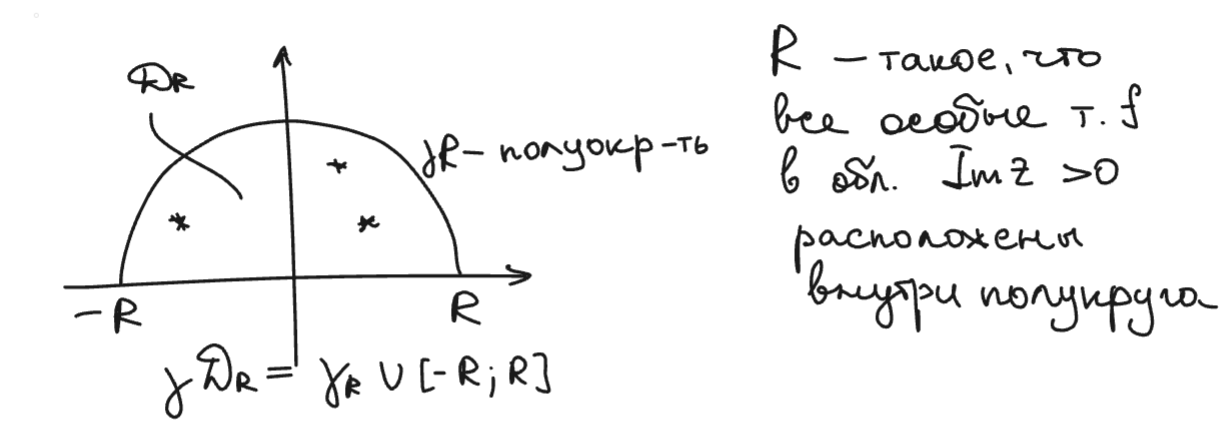 𝒟R
γR – полуокр-ть
-R
R
γ𝒟R = γR ∪ [-R; R]
R – такое, что
все особые т. f
в обл. Im z > 0
расположены
внутри полукруга